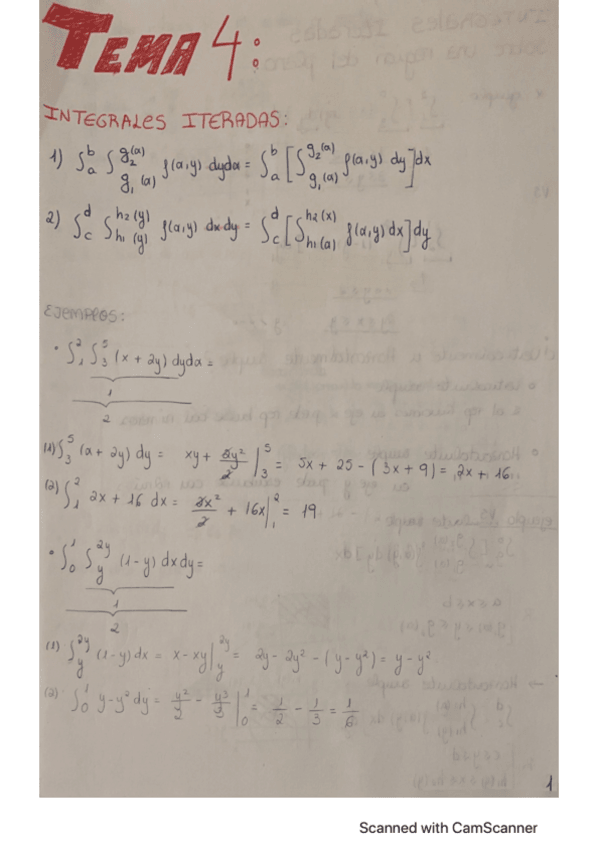 TEMA 4:
INTEGRALES ITERADAS:
1) ∫_a^b ∫_{g₁(a)}^{g₂(a)} f(a,y) dyda = ∫_a^b [∫_{g₁(a)}^{g₂(a)} f(a,y) dy]dx
2) ∫_c^d ∫_{h₁(y)}^{h₂(y)} f(a,y) dxdy = ∫_c^d [∫_{h₁(a)}^{h₂(x)} f(a,y) dx]dy
EJEMPLOS:
• ∫_1^2 ∫_3^5 (x + 2y) dyda =
1
2
(1) ∫_3^5 (a + 2y) dy = xy + 2y²/2 |_3^5 = 5x + 25 - (3x + 9) = 2x + 16
(2) ∫_1^2 2x + 16 dx = 2x²/2 + 16x |_1^2 = 19
• ∫_0^1 ∫_y^{2y} (1-y) dxdy =
1
2
(1) ∫_y^{2y} (1-y) dx = x - xy |_y^{2y} = 2y - 2y² - (y - y²) = y - y²
(2) ∫_0^1 y - y² dy = y²/2 - y³/3 |_0^1 = 1/2 - 1/3 = 1/6
1
Scanned with CamScanner